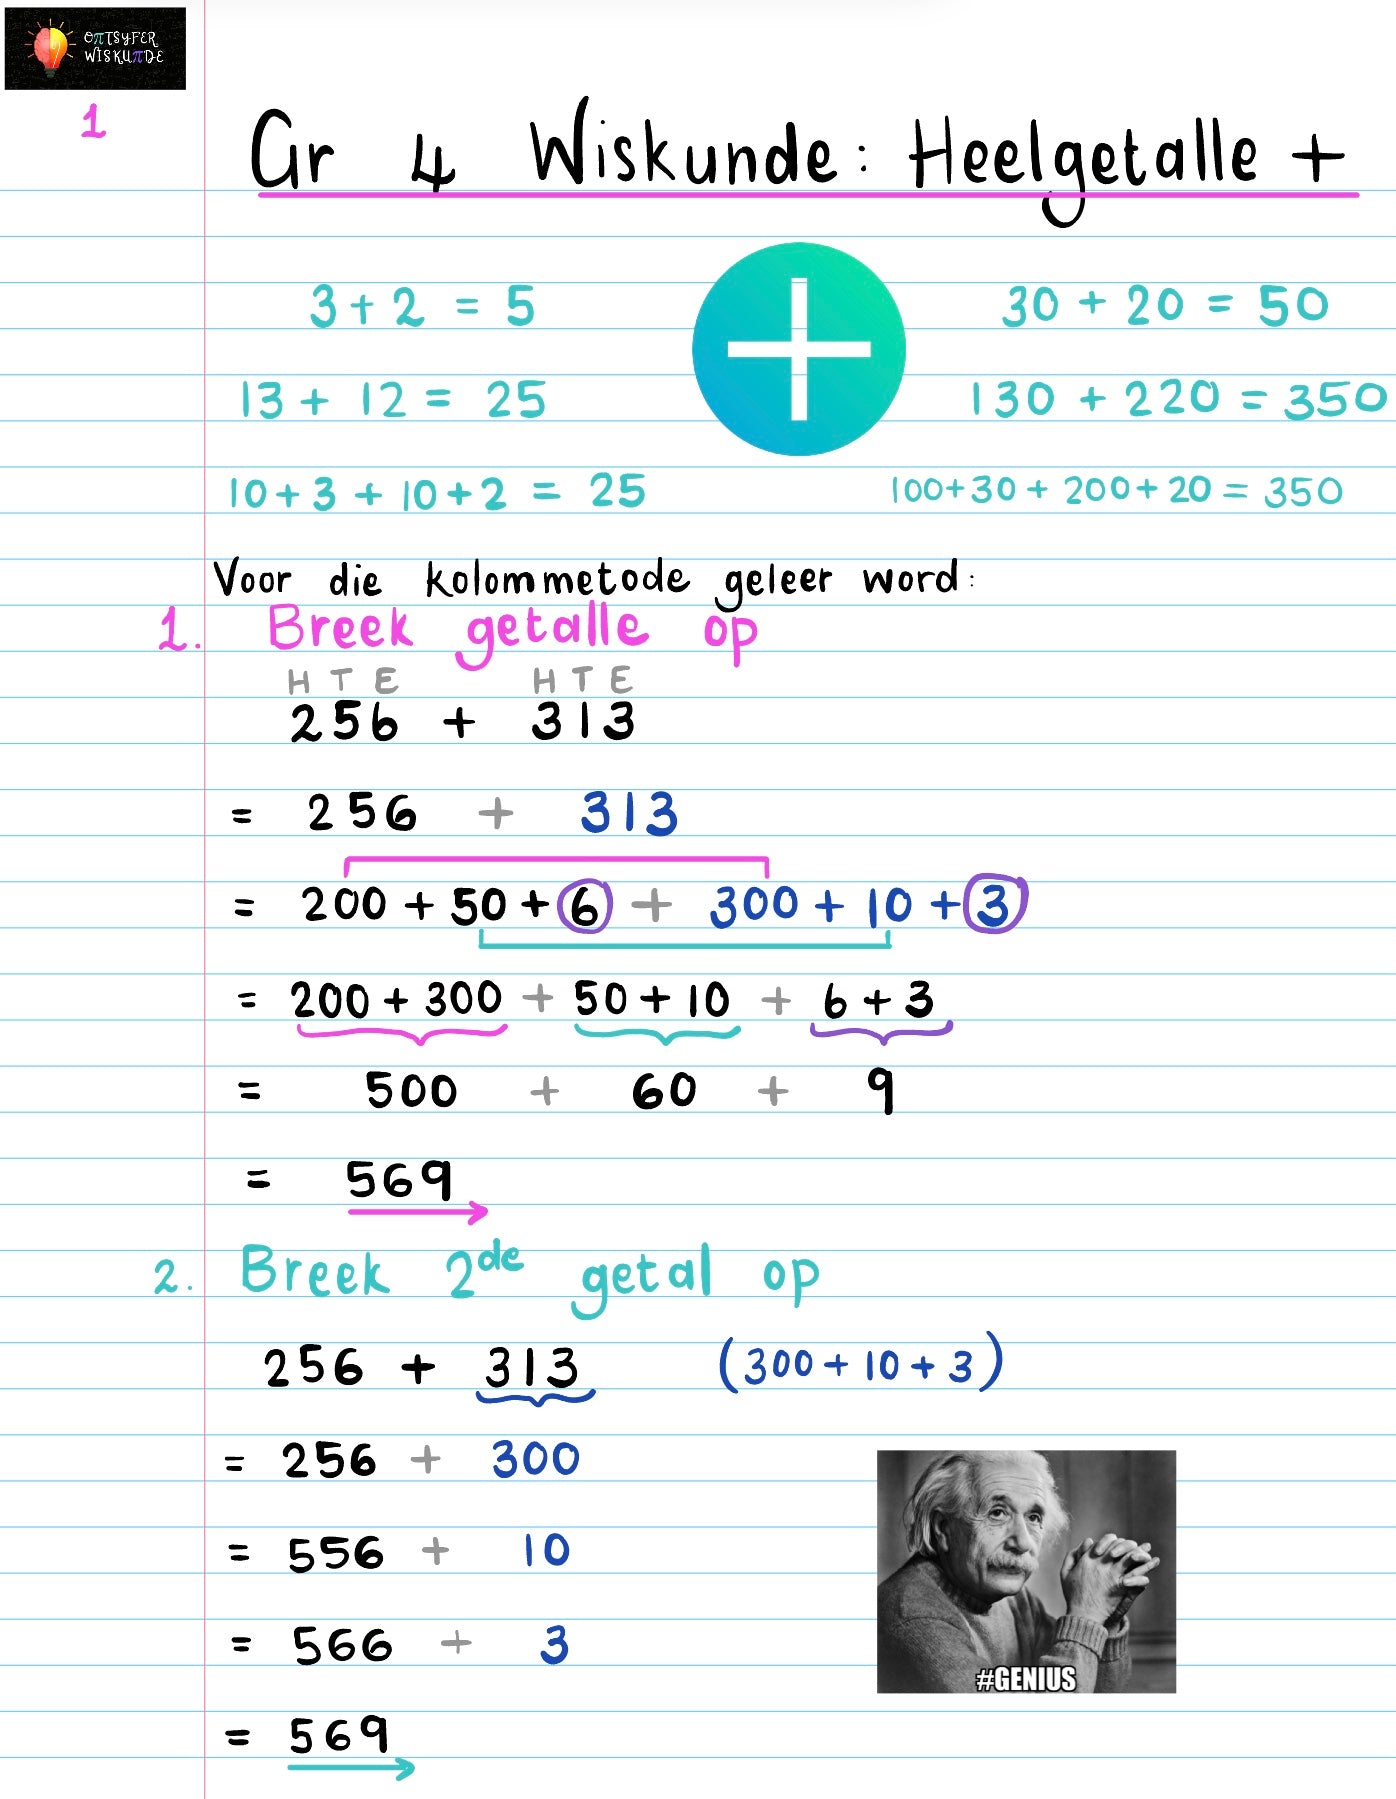 OπTSYFER
WISKUπDE
1
Gr 4 Wiskunde: Heelgetalle +
3 + 2 = 5
30 + 20 = 50
13 + 12 = 25
130 + 220 = 350
10 + 3 + 10 + 2 = 25
100 + 30 + 200 + 20 = 350
Voor die kolommetode geleer word:
1. Breek getalle op
H T E H T E
256 + 313
= 256 + 313
= 200 + 50 + 6 + 300 + 10 + 3
= 200 + 300 + 50 + 10 + 6 + 3
= 500 + 60 + 9
= 569
2. Breek 2de getal op
256 + 313 (300 + 10 + 3)
= 256 + 300
= 556 + 10
= 566 + 3
= 569
#GENIUS